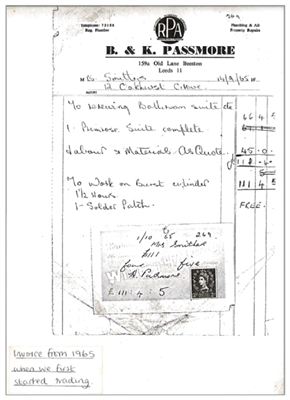 269
RPA
Telephone: 75158
Reg. Plumber
Plumbing & All
Property Repairs
B. & K. PASSMORE
159a Old Lane Beeston
Leeds 11
M
14/9/65
12 Oakhurst Grove
To Renewing Bathroom suite etc
66 4
1 Primrose Suite complete
Labour & Materials As Quote.
45 - 0
To Work on Burst cylinder
111 4
1½ Hours.
1 - Solder Patch.
FREE.
1/10 65 269
Mrs Smithers
£111
four five
£ 111 : 4 : 5
Invoice from 1965
when we first
started trading.